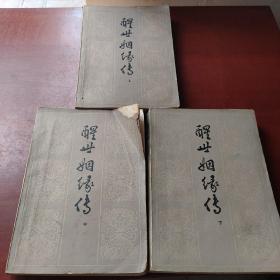 醒世姻缘传 上
醒世姻缘传 中
醒世姻缘传 下